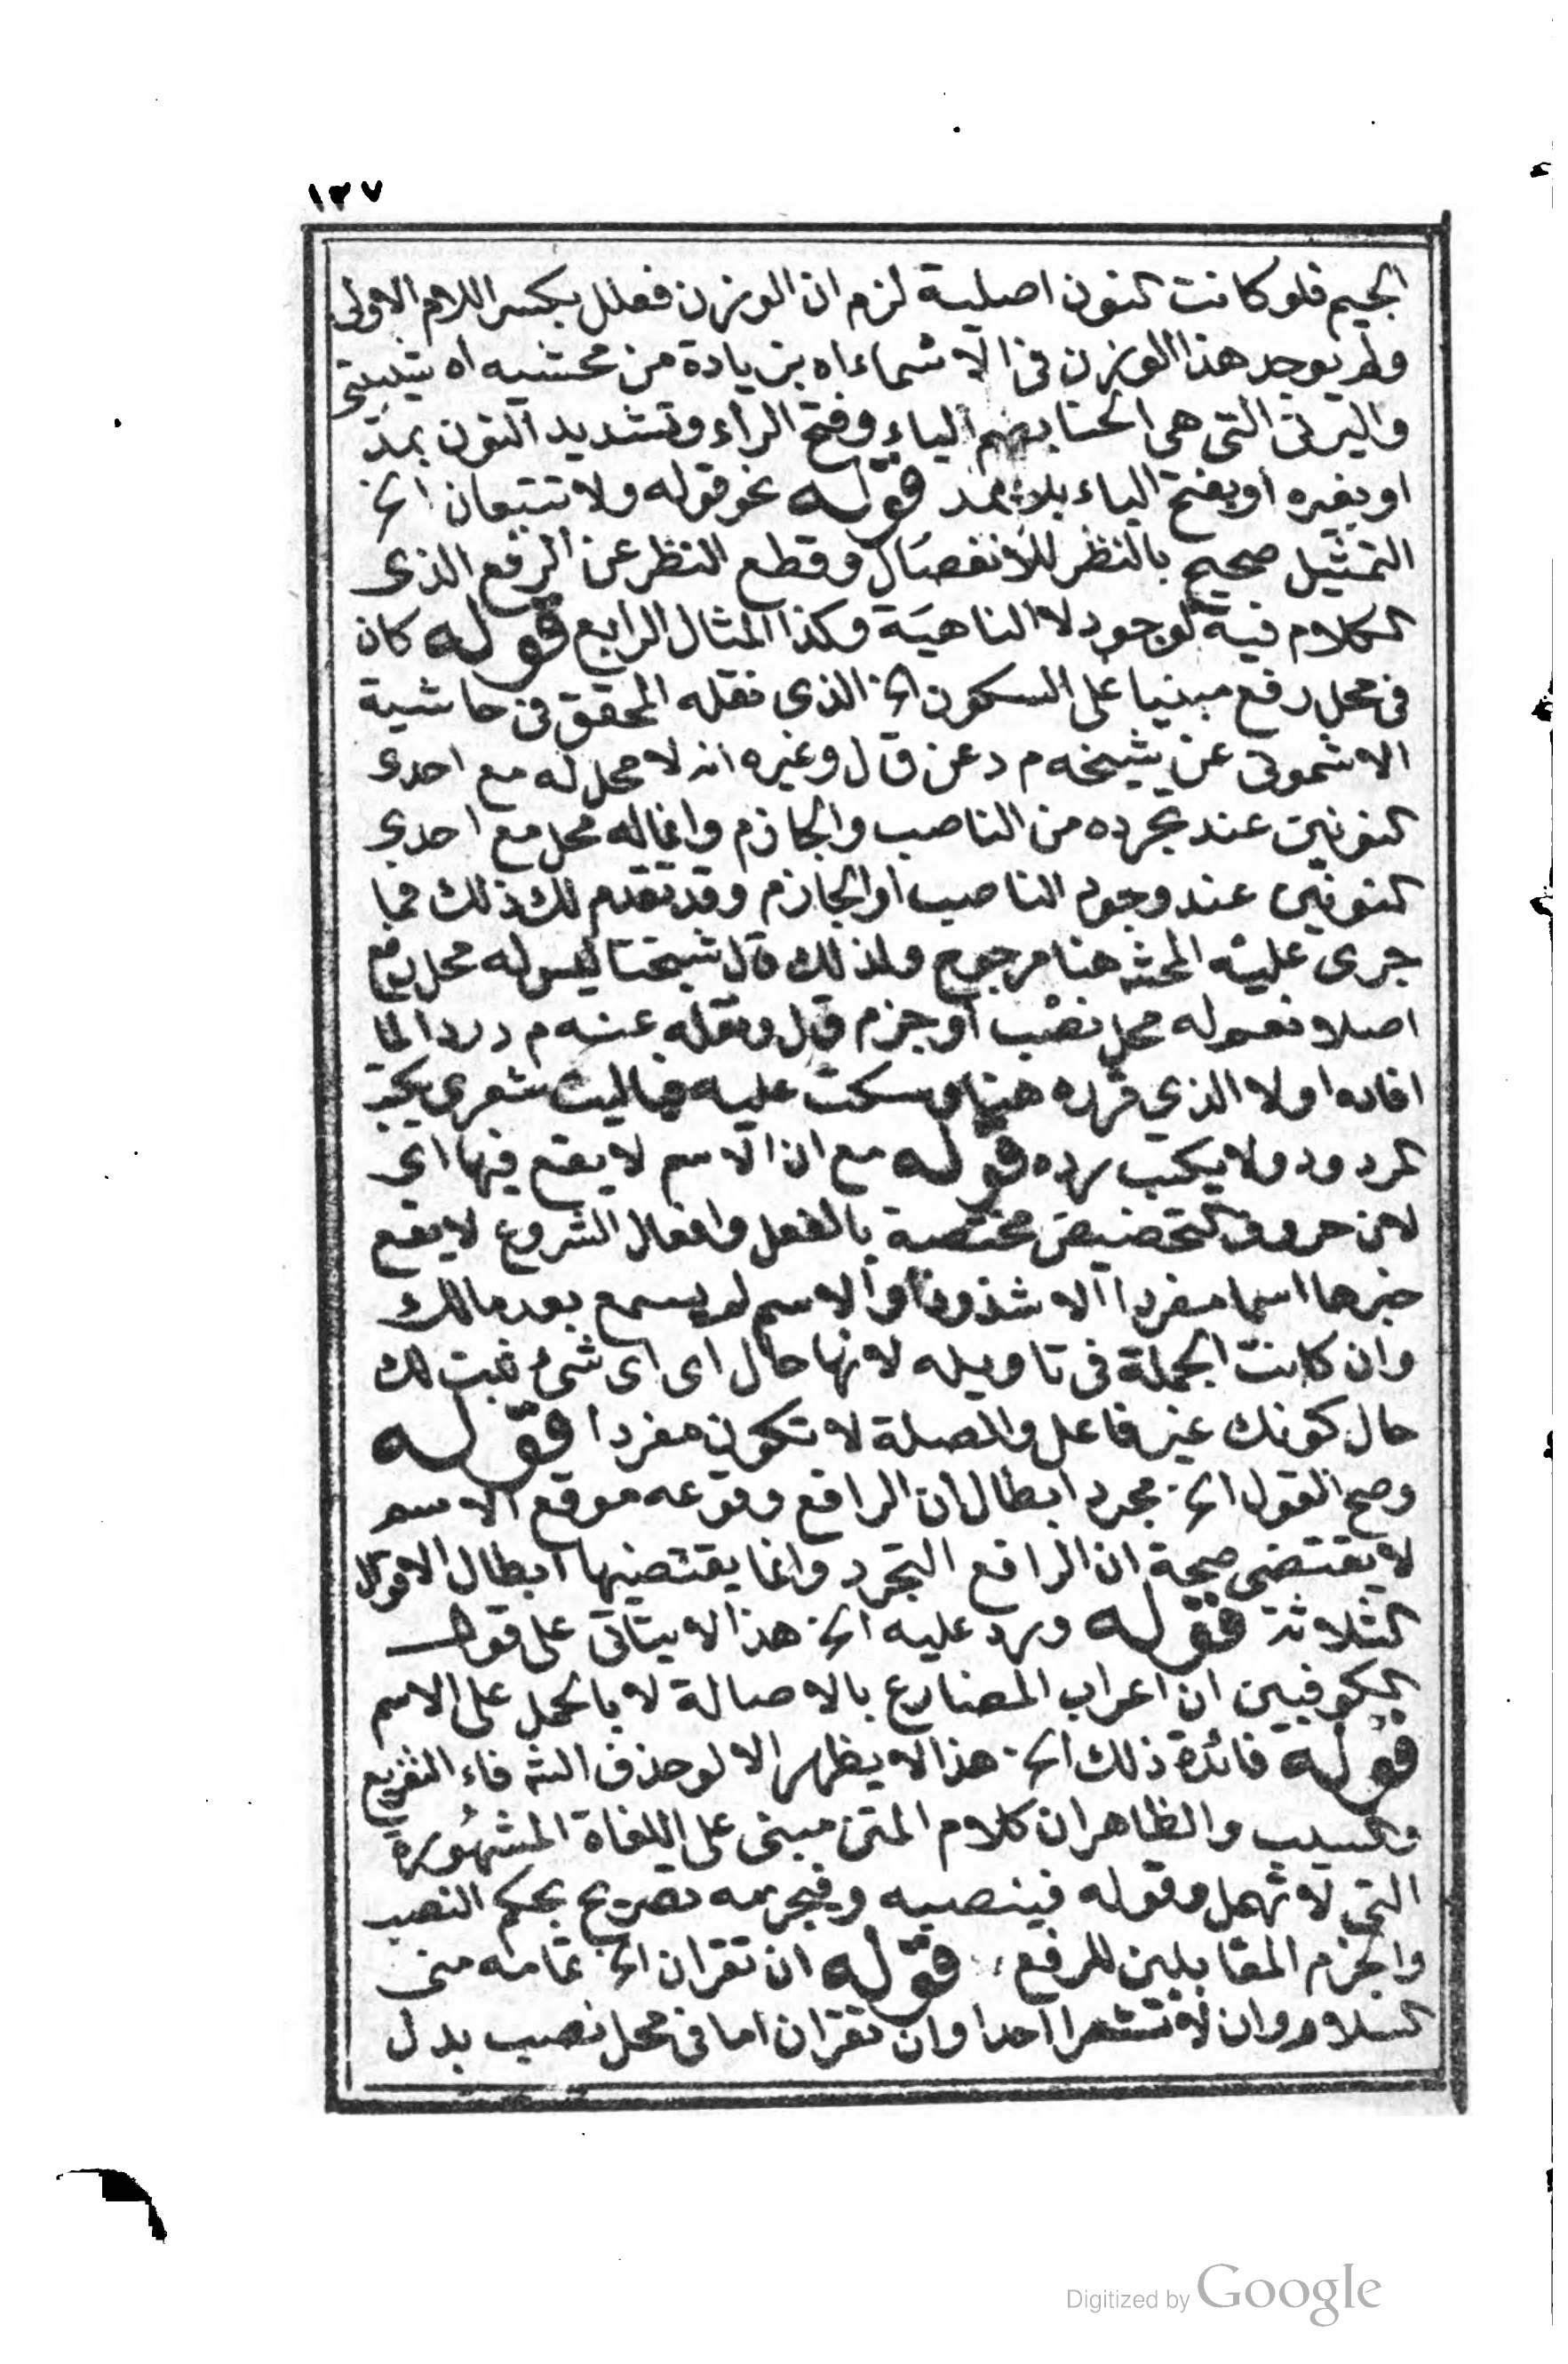 ١٢٧
الجيم فلو كانت النون اصلية لزم ان الوزن فعلل بكسر اللام الاولى
ولم يوجد هذا الوزن فى الاسماء اه بزيادة من محشيه اه شبيتى
واليرنى التى هى الحنا بضم الياء وفتح الراء وتشديد النون بمد
او بغيره او بفتح الياء بلا مد قوله نحو قوله ولا تتبعان الخ
التمثيل صحيح بالنظر للانفصال وقطع النظر عن الرفع الذى
الكلام فيه لوجود لا الناهية وكذا المثال الرابع قوله كان
فى محل رفع مبنيا على السكون الخ الذى نقله المحقق فى حاشية
الاشمونى عن شيخه م د عن ق ل وغيره انه لا محل له مع احدى
النونين عند تجرده من الناصب والجازم وانما له محل مع احدى
النونين عند وجود الناصب او الجازم وقد تقدم لك ذلك فما
جرى عليه المحشى هنا مرجوح ولذلك قال شيخنا ليس له محل رفع
اصلا نعم له محل نصب او جزم ق ل ونقله عنه م د ردا لما
افاده اولا الذي قرره هنا وسكت عليه فيا ليت شعرى يكتب
المردود ولا يكتب رده قوله مع ان الاسم لا يقع فيها اى
لان حروف التحضيض مختصة بالفعل وافعال الشروع لا يقع
خبرها اسما مفردا الا شذوذا والاسم لم يسمع بعد مالك
وان كانت الجملة فى تاويله لانها حال اى اى شئ ثبت لك
حال كونك غير فاعل والصلة لا تكون مفردا قوله
وصح القول الخ مجرد ابطال ان الرافع وقوعه موقع الاسم
لا يقتضى صحة ان الرافع التجرد وانما يقتضيها ابطال الاقوال
الثلاثة قوله ورد عليه الخ هذا لا يتاتى على قول
الكوفيين ان اعراب المضارع بالاصالة لا بالحمل على الاسم
قوله فائدة ذلك الخ هذا لا يظهر الا لو حذف الش فاء التفريع
والسبب والظاهر ان كلام المتن مبنى على اللغاة المشهورة
التى لا تهمل وقوله فينصبه ويجزمه تصريح بحكم النصب
والجزم المقابلين للرفع قوله ان تقران الخ تمامه منى
السلام وان لا تشعرا احدا وان تقران اما فى محل نصب بدل
Digitized by Google